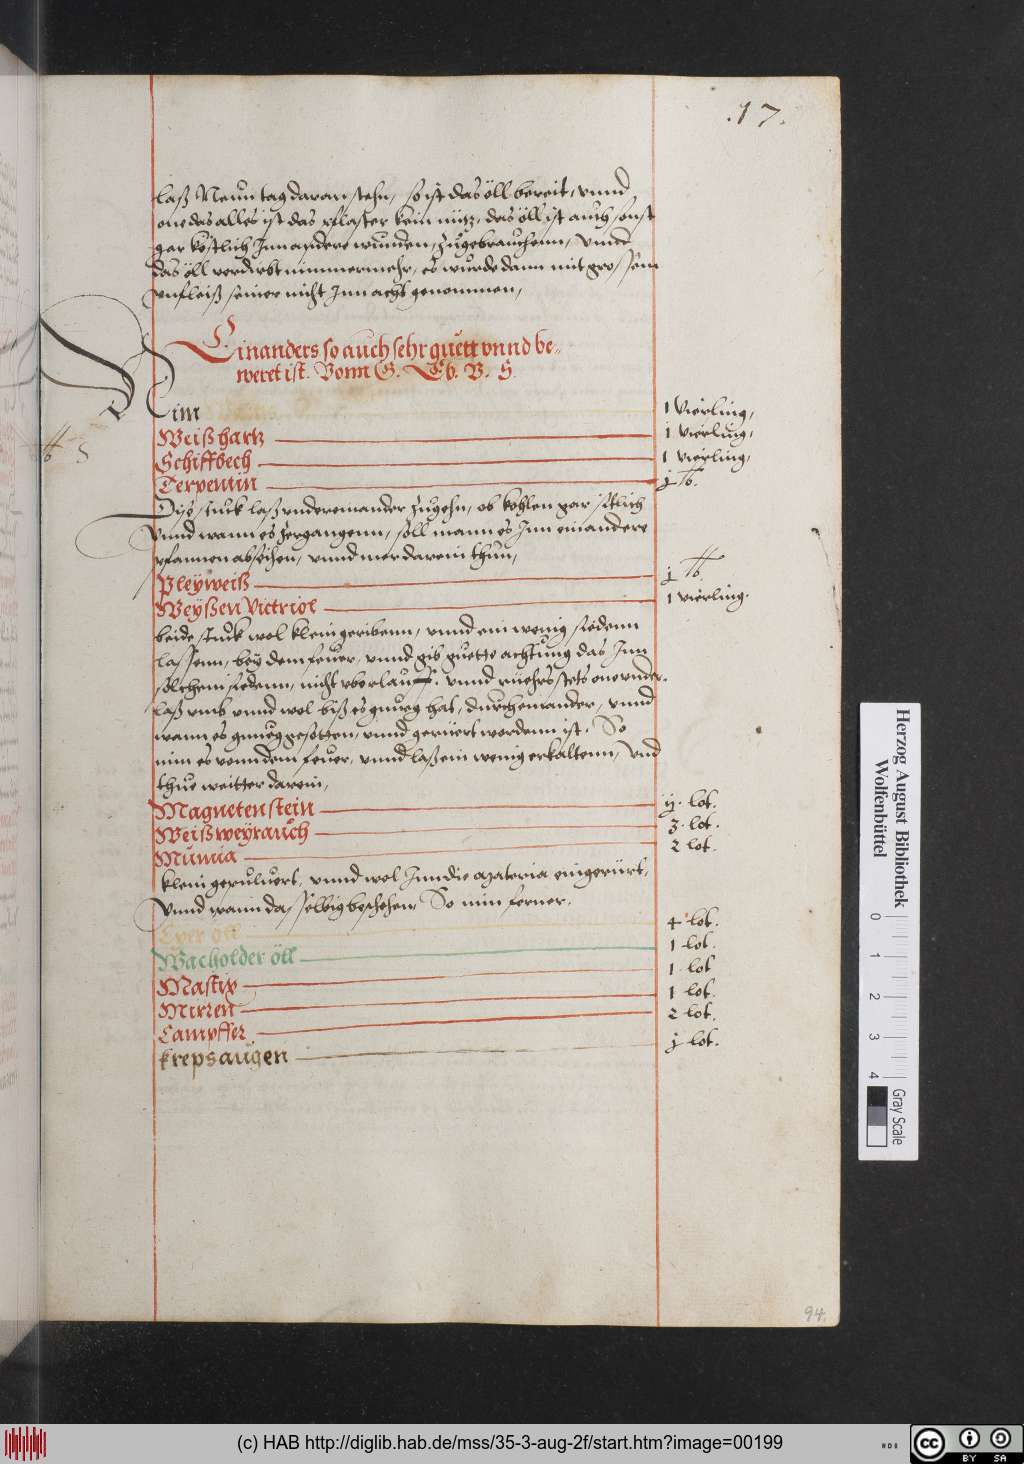 .17.
laß Neun tag daran stehn, so ist das öll bereit, vnnd
one das alles ist das pflaster kein nütz, das öll ist auch sonst
gar köstlich Inn andere wunden, zugebrauchenn, vnnd
das öll verdirbt nimmermehr, es wurde dann mit grossem
vnfleiß seiner nicht Inn acht genommen,
Ein anders so auch sehr guett vnnd be„
weret ist. Vonn G. Eb. V. S.
Nim
Weißhartz 1 vierling,
Schiffbech 1 vierling,
Terpentin 1 vierling,
j lb.
Dise stuck laß vndereinander zugehn, ob kohlen gar sitlich
vnnd wann es zergangenn, soll mann es Inn ein andere
pfannen abseihen, vnnd mer darein thun,
Pleÿweiß j lb.
Weÿßen Victriol 1 vierling.
beide stuck wol klein geribenn, vnnd ein wenig siedenn
lassenn, beÿ dem feuer, vnnd gib guette achtung das Inn
solchem siedenn, nicht vberlauff. vnnd ruehrs stets one vnder
laß vmb vnnd wol biß es gnueg hat, durcheinander, vnnd
wann es gnueg gesotten, vnnd gerüert wordenn ist. So
nim es vonn dem feuer, vnnd laß ein wenig erkaltenn, vnd
thue weitter darein,
Magnetenstein ij. lot.
Weißweÿrauch 3. lot.
Mumia 2 lot.
klein gepuluert, vnnd wol Inn die materia eingerürt,
vnnd wann dasselbig beschehen, So nim ferner.
Eyer öll 4 lot.
Wacholder öll 1 lot.
Mastix 1 lot
Mirren 1 lot.
Campffer 2 lot.
krepsaugen j lot.
94.
Herzog August Bibliothek
Wolfenbüttel
0 1 2 3 4
Gray Scale
(c) HAB http://diglib.hab.de/mss/35-3-aug-2f/start.htm?image=00199
cc BY SA